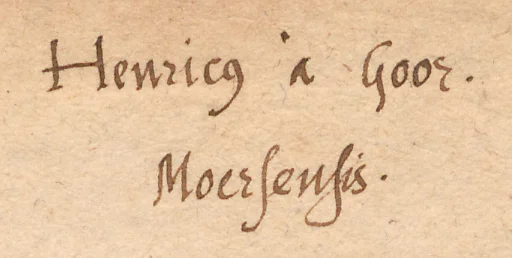 Henricꝰ à Goor.
Moersensis.